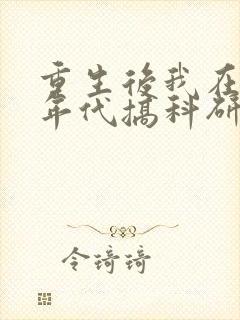 重生後我在
年代搞科研
令琦琦